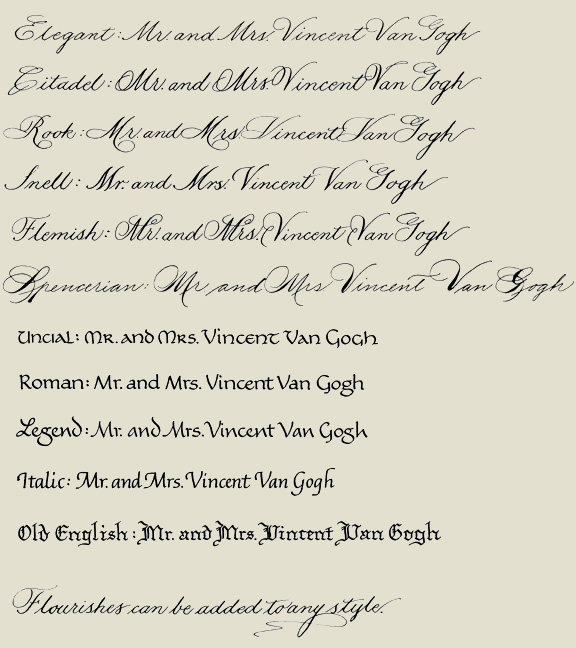 Elegant: Mr and Mrs. Vincent Van Gogh
Citadel: Mr. and Mrs. Vincent Van Gogh
Rook: Mr and Mrs Vincent Van Gogh
Snell: Mr. and Mrs. Vincent Van Gogh
Flemish: Mr. and Mrs. Vincent Van Gogh
Spencerian: Mr and Mrs Vincent Van Gogh
Uncial: Mr. and Mrs. Vincent Van Gogh
Roman: Mr. and Mrs. Vincent Van Gogh
Legend: Mr. and Mrs. Vincent Van Gogh
Italic: Mr. and Mrs. Vincent Van Gogh
Old English: Mr. and Mrs. Vincent Van Gogh
Flourishes can be added to any style.